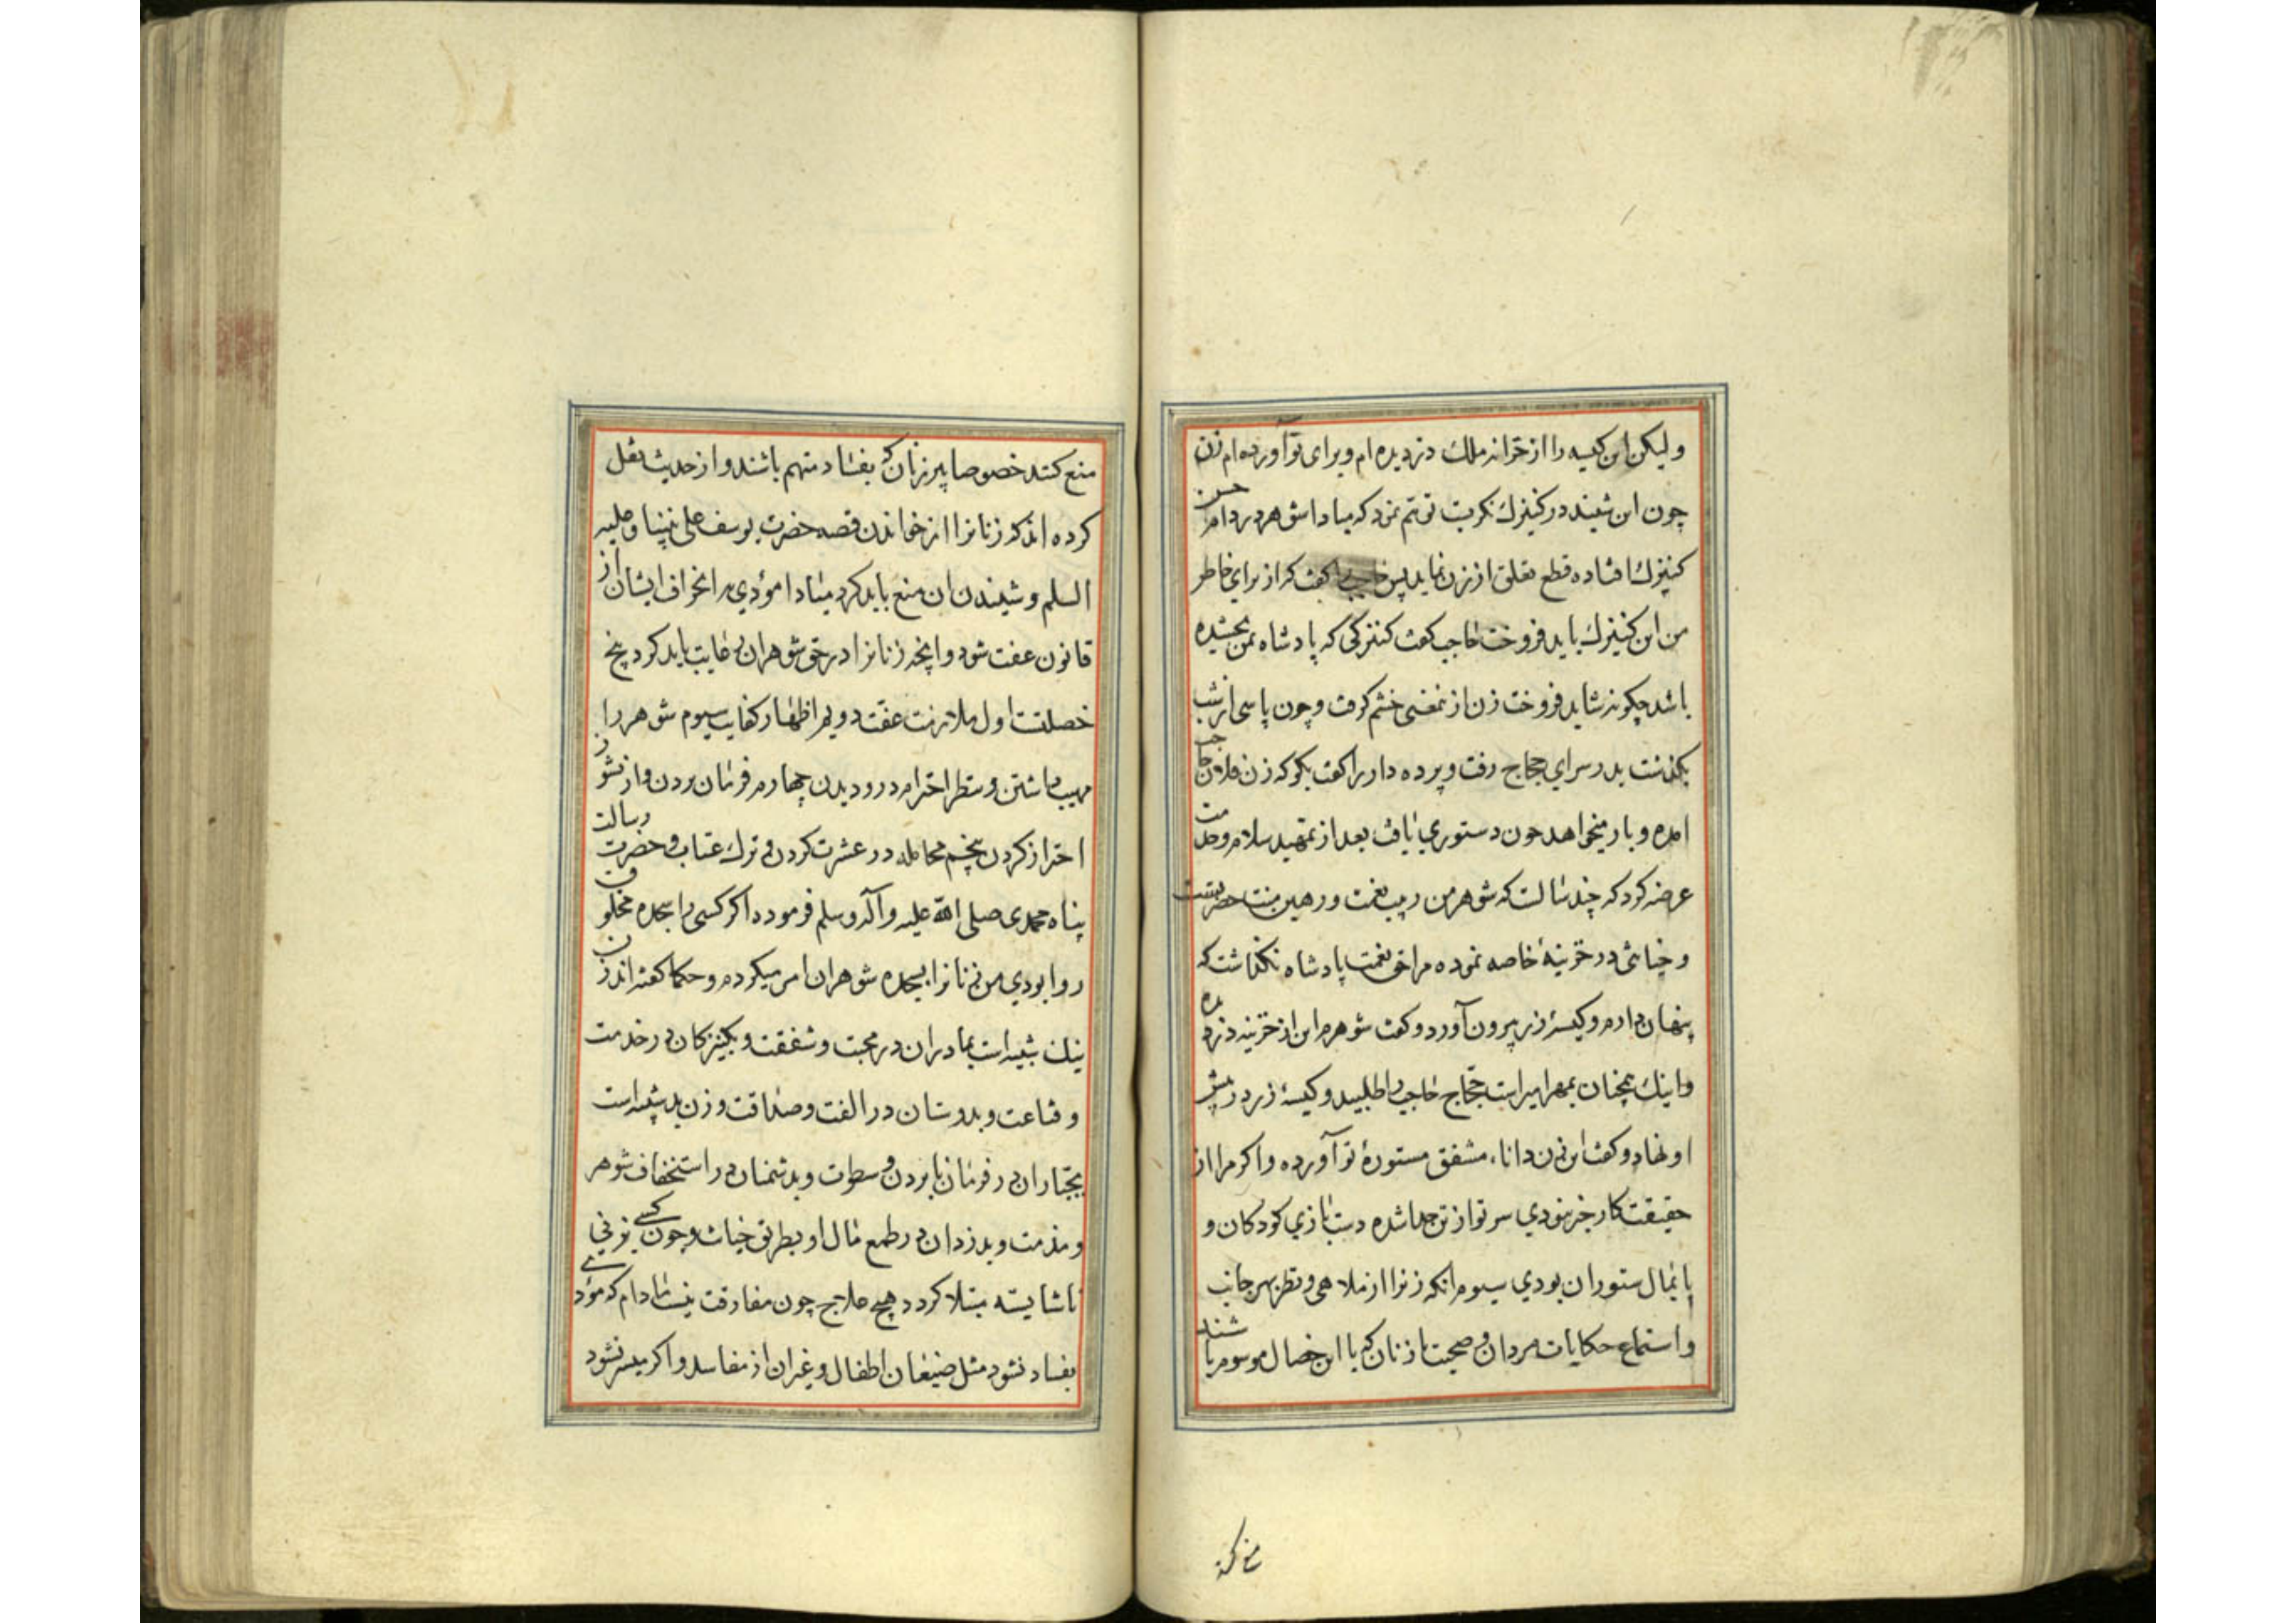 ولیکن این کیسه را از خزانه ملک دزدیده‌ام و برای تو آورده‌ام زن
چون این شنید در کنیزک نکریت توهم نمود که مبادا شوهر در دام حسن
کنیزک افتاده قطع تعلق از زن نماید پس حاجب را کفت که از برای خاطر
من این کنیزک باید فروخت حاجب کفت کنیزکی که پادشاه بمن بخشیده
باشد چکونه شاید فروخت زن از نمعنی خشم کرفت و چون پاسی از شب
بکذشت بدر سرای حجاج رفت و پرده دار را کفت بکو که زن فلان حاجب
امده و بار میخواهد چون دستوری یافت بعد از تمهید سلام و خدمت
عرضه کرد که چند سالست که شوهر من ربیب نعمت و رهین منت حضرتست
و خیانتی در خزینهٔ خاصه نموده مرا حق نعمت پادشاه نکذاشت که
پنهان دارم و کیسهٔ زر بیرون آورد و کفت شوهرم این از خزینه دزدیده
و اینک همچنان بمهر امیر است حجاج حاجب را طلبید و کیسهٔ زر در پیش
او نهاد و کفت این زن دانا، مشفق مستورهٔ تو آورده و اکر مرا از
حقیقت کار خبر نبودی سر تو از تن جدا شده دست بازی کودکان و
پایمال ستوران بودی سیوم انکه زنرا از ملاهی و نظر بهر جانب
و استماع حکایات مردان و صحبت با زنان که با این خصال موسوم باشند
منع کند
منع کنند خصوصا پیر زنان که بفساد متهم باشند و از حدیث نقل
کرده‌اند که زنانرا از خواندن قصه حضرت یوسف علی نبینا و علیه
السلم و شنیدن ان منع باید کرد مبادا مؤدی بر انحراف ایشان از
قانون عفت شود و انچه زنانرا در حق شوهران رعایت باید کرد پنج
خصلتست اول ملازمت عفت دویم اظهار کفایت سیوم شوهر را
مهیب داشتن و بنظر احترام در و دیدن چهارم فرمان بردن و از نشوز
احتراز کردن پنجم مجامله در عشرت کردن و ترک عتاب و حضرت رسالت
پناه محمدی صلی الله علیه و آله وسلم فرموده اکر کسی را سجده مخلوق
روا بودی من زنانرا بسجده شوهران امر میکردم و حکما کفته‌اند زن
نیک شبیه است بمادران در محبت و شفقت و بکنیزکان در خدمت
و قناعت و بدوستان در الفت و صداقت و زن بد شبیه است
بجباران در فرمان نابردن و سطوت و بدشمنان در استخفاف شوهر
و مذمت و بدزدان در طمع مال او بطریق خیانت و چون کسی بزنی
ناشایسته مبتلا کردد هیچ علاج چون مفارقت نیست مادام که مؤدی
بفساد نشود مثل ضیعان اطفال و غیر ان از مفاسد و اکر میسر نشود